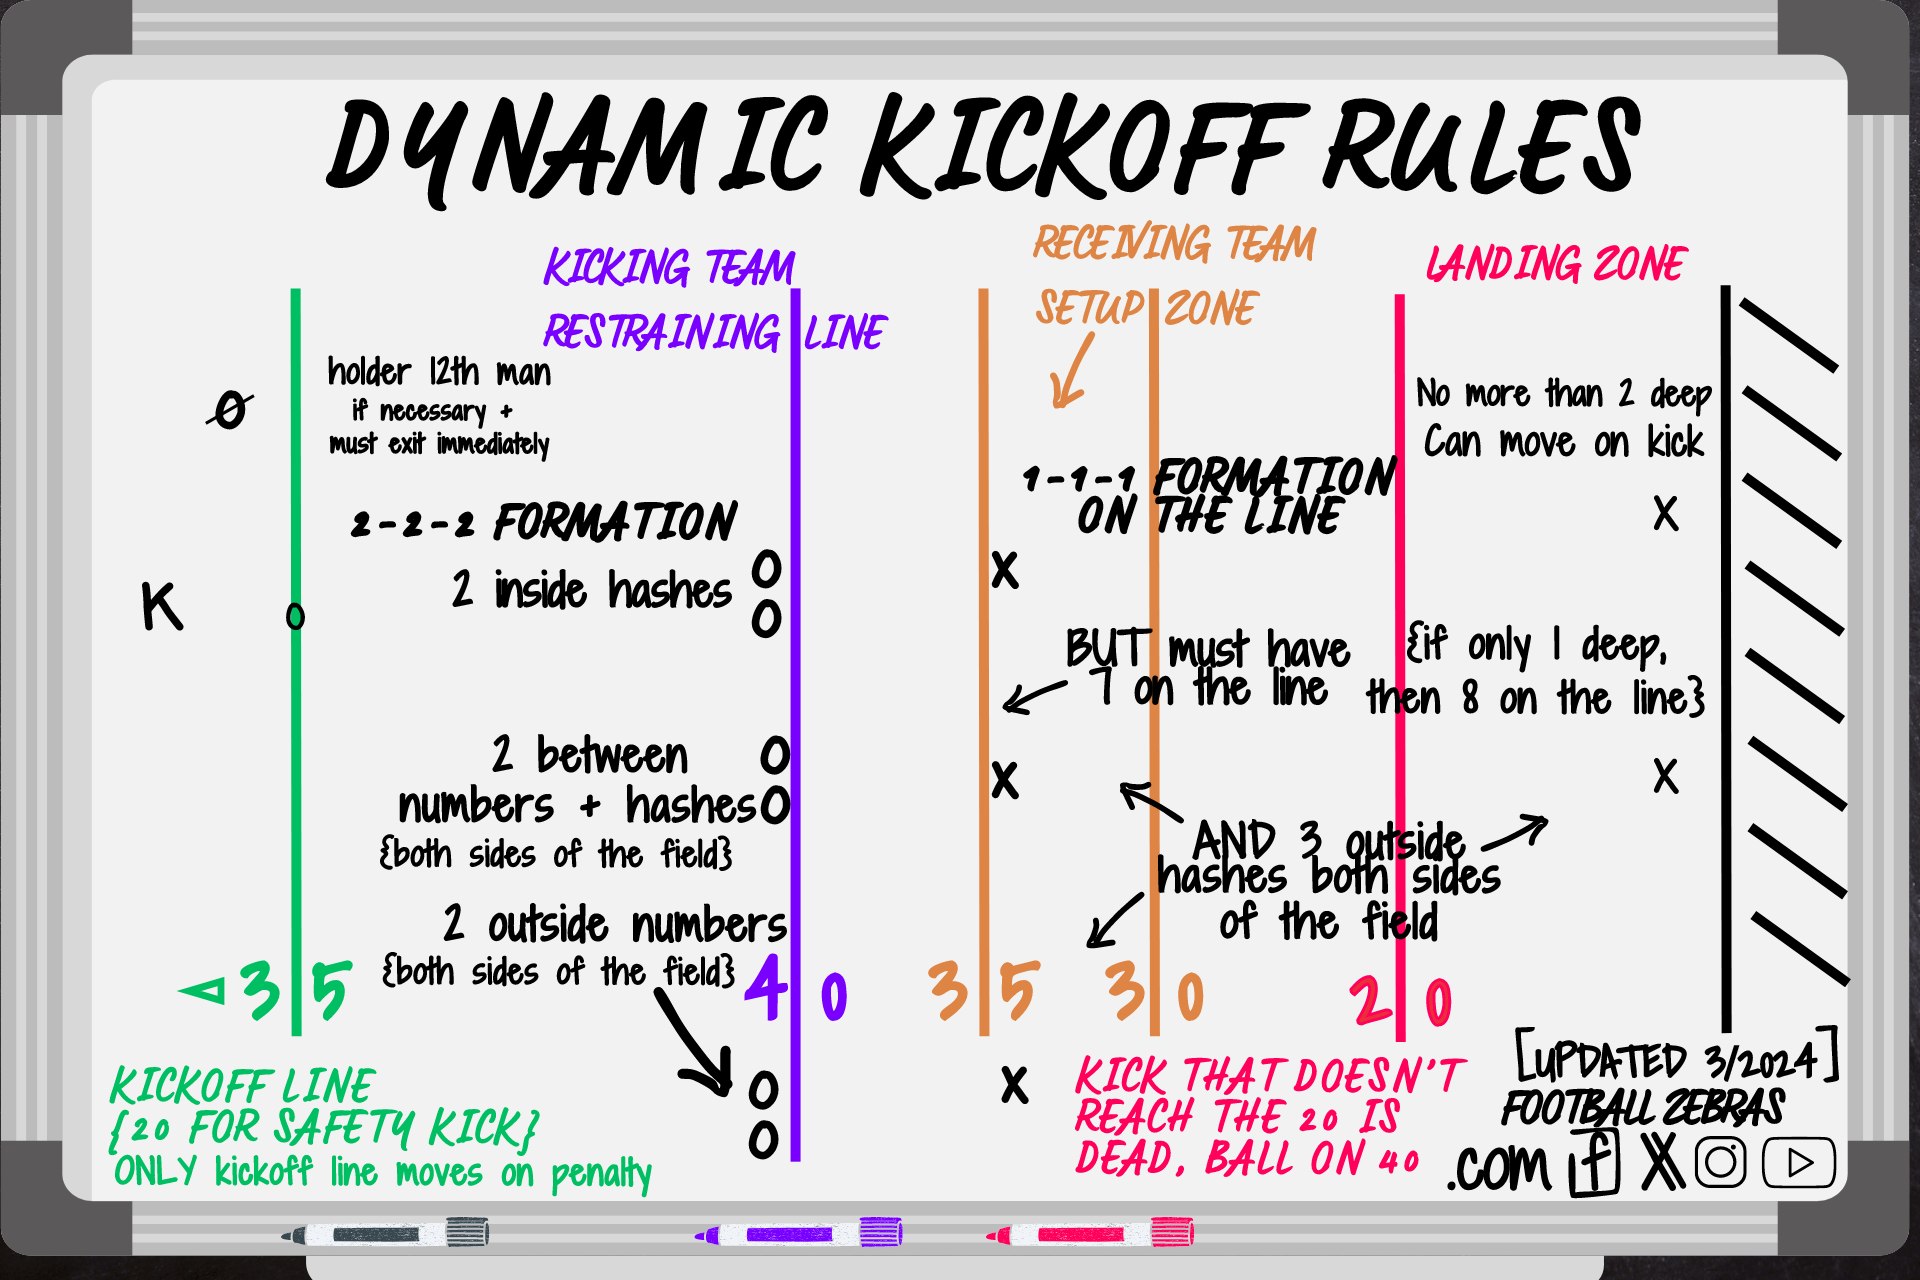 DYNAMIC KICKOFF RULES
KICKING TEAM
RESTRAINING LINE
RECEIVING TEAM
SETUP ZONE
LANDING ZONE
holder 12th man
if necessary +
must exit immediately
Ø
No more than 2 deep
Can move on kick
2-2-2 FORMATION
1-1-1 FORMATION
ON THE LINE
X
O
X
2 inside hashes
O
K
O
BUT must have
7 on the line
{if only 1 deep,
then 8 on the line}
2 between
O
X
X
numbers + hashes
O
{both sides of the field}
AND 3 outside
hashes both sides
of the field
2 outside numbers
{both sides of the field}
3 5
4 0
3 5
3 0
2 0
KICKOFF LINE
{20 FOR SAFETY KICK}
ONLY kickoff line moves on penalty
O
O
X
KICK THAT DOESN'T
REACH THE 20 IS
DEAD, BALL ON 40
[UPDATED 3/2024]
FOOTBALL ZEBRAS
.com f X